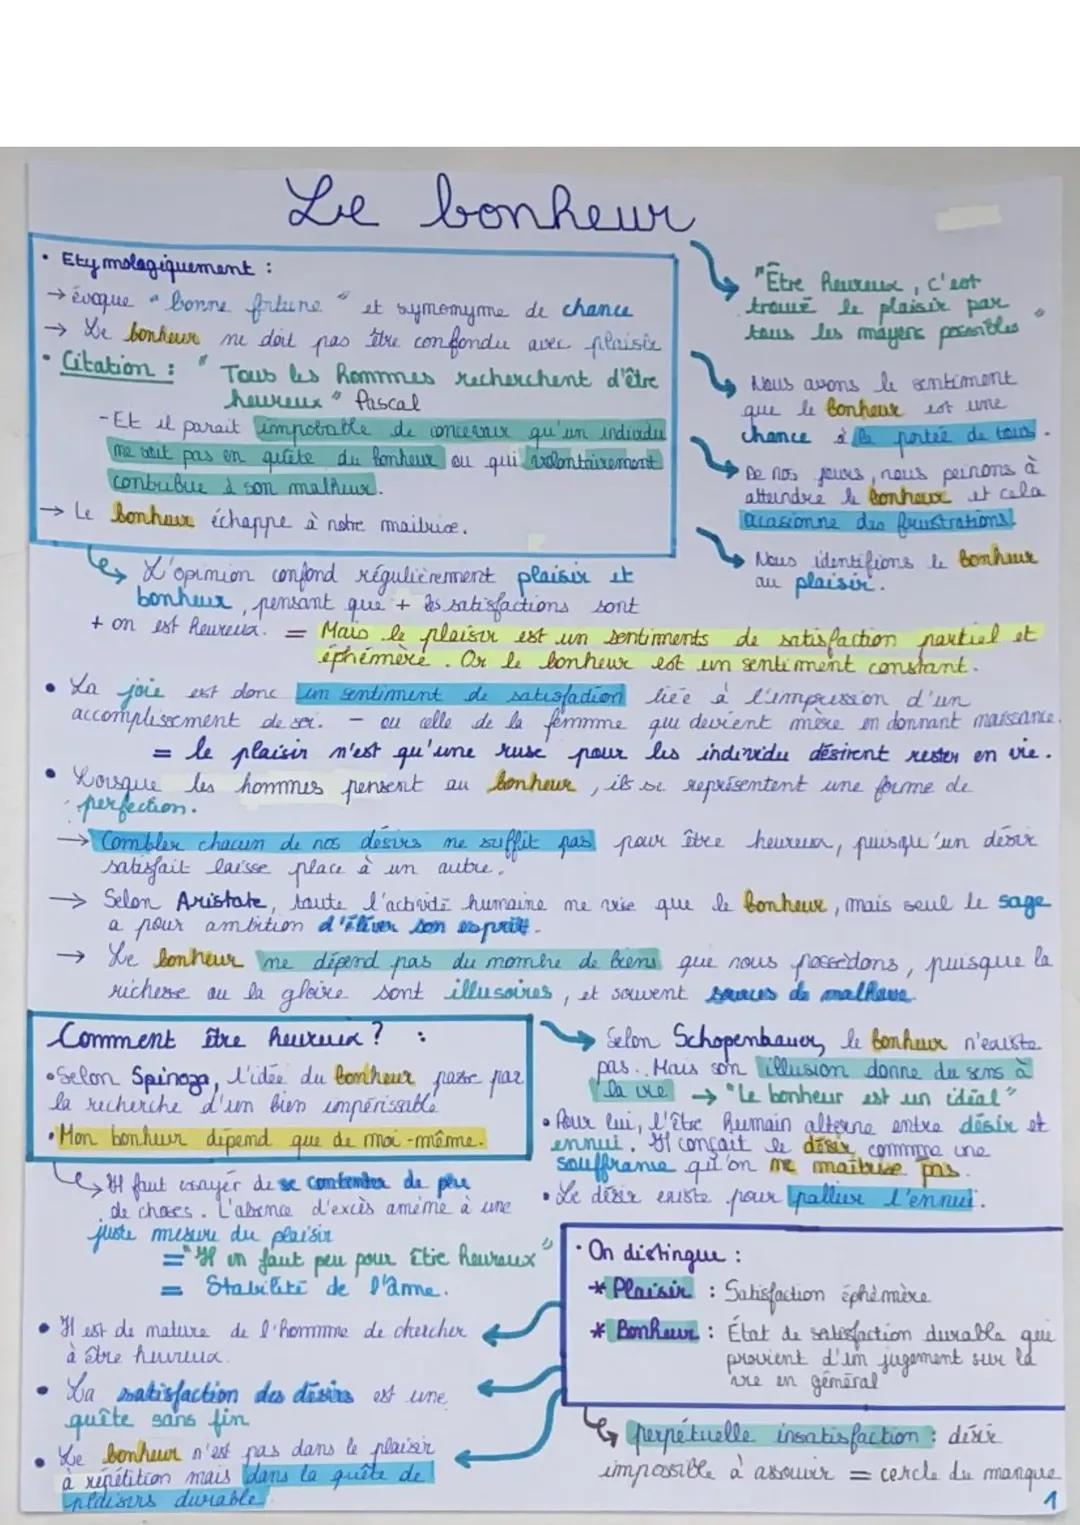 Le bonheur
• Etymologiquement :
→ évoque "bonne fortune" et synonyme de chance
→ Le bonheur ne doit pas être confondu avec plaisir
• Citation : "Tous les hommes recherchent d'être
heureux" Pascal
- Et il parait improbable de concevoir qu'un individu
ne soit pas en quête du bonheur ou qui volontairement
contribue à son malheur.
→ Le bonheur échappe à notre maitrise.
"Être heureux, c'est
trouvé le plaisir par
tous les moyens possibles"
Nous avons le sentiment
que le bonheur est une
chance à la portée de tous.
De nos jours, nous peinons à
atteindre le bonheur et cela
occasionne des frustrations.
Nous identifions le bonheur
au plaisir.
L'opinion confond régulièrement plaisir et
bonheur, pensant que + les satisfactions sont
+ on est heureux. = Mais le plaisir est un sentiments de satisfaction partiel et
éphémère. Or le bonheur est un sentiment constant.
• La joie est donc un sentiment de satisfaction liée à l'impression d'un
accomplissement de soi. - ou celle de la femme qui devient mère en donnant naissance.
= le plaisir n'est qu'une ruse pour les individu désirent rester en vie.
• Lorsque les hommes pensent au bonheur, ils se représentent une forme de
perfection.
→ Combler chacun de nos désirs ne suffit pas pour être heureux, puisqu'un désir
satisfait laisse place à un autre.
→ Selon Aristote, toute l'activité humaine ne vise que le bonheur, mais seul le sage
a pour ambition d'élever son esprit.
→ Le bonheur ne dépend pas du nombre de biens que nous possédons, puisque la
richesse ou la gloire sont illusoires, et souvent sources de malheur.
Comment être heureux ? :
• Selon Spinoza, l'idée du bonheur passe par
la recherche d'un bien impérissable
• Mon bonheur dépend que de moi-même.
Il faut essayer de se contenter de peu
de choses. L'absence d'excès amène à une
juste mesure du plaisir
= "Il en faut peu pour Être heureux"
= Stabilité de l'âme.
Selon Schopenhauer, le bonheur n'existe
pas. Mais son illusion donne du sens à
la vie → "Le bonheur est un idéal"
• Pour lui, l'être humain alterne entre désir et
ennui. Il conçoit le désir comme une
souffrance qu'on ne maitrise pas.
• Le désir existe pour pallier l'ennui.
• On distingue :
* Plaisir : Satisfaction éphémère
* Bonheur : État de satisfaction durable qui
provient d'un jugement sur la
vie en général
perpétuelle insatisfaction : désir
impossible à assouvir = cercle du manque
• Il est de nature de l'homme de chercher
à être heureux.
• La satisfaction des désirs est une
quête sans fin
• Le bonheur n'est pas dans le plaisir
à répétition mais dans la quête de
plaisirs durable
1